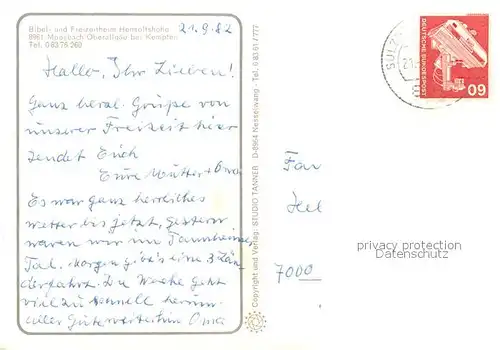 Bibel- und Freizeitheim Hensoltshöhe
8961 Moosbach-Oberallgäu bei Kempten
Tel. 0 83 76 360
21.9.82
Hallo, Ihr Lieben!
Ganz herzl. Grüße von
unserer Freizeit hier
sendet Euch
Eure Mutter + Oma
Es war ganz herrliches
wetter bis jetzt, gestern
waren wir im Tannheimer
Tal. Morgen g. es eine 3 Län-
derfahrt. Die Woche geht
viel zu schnell herum.
alles Gute weiterhin Oma
Copyright und Verlag: STUDIO TANNER D-8964 Nesselwang · Tel. 0 83 61 / 777
SULZ
21.
DEUTSCHE BUNDESPOST
60
Fam
Hel
7000
privacy protection
Datenschutz